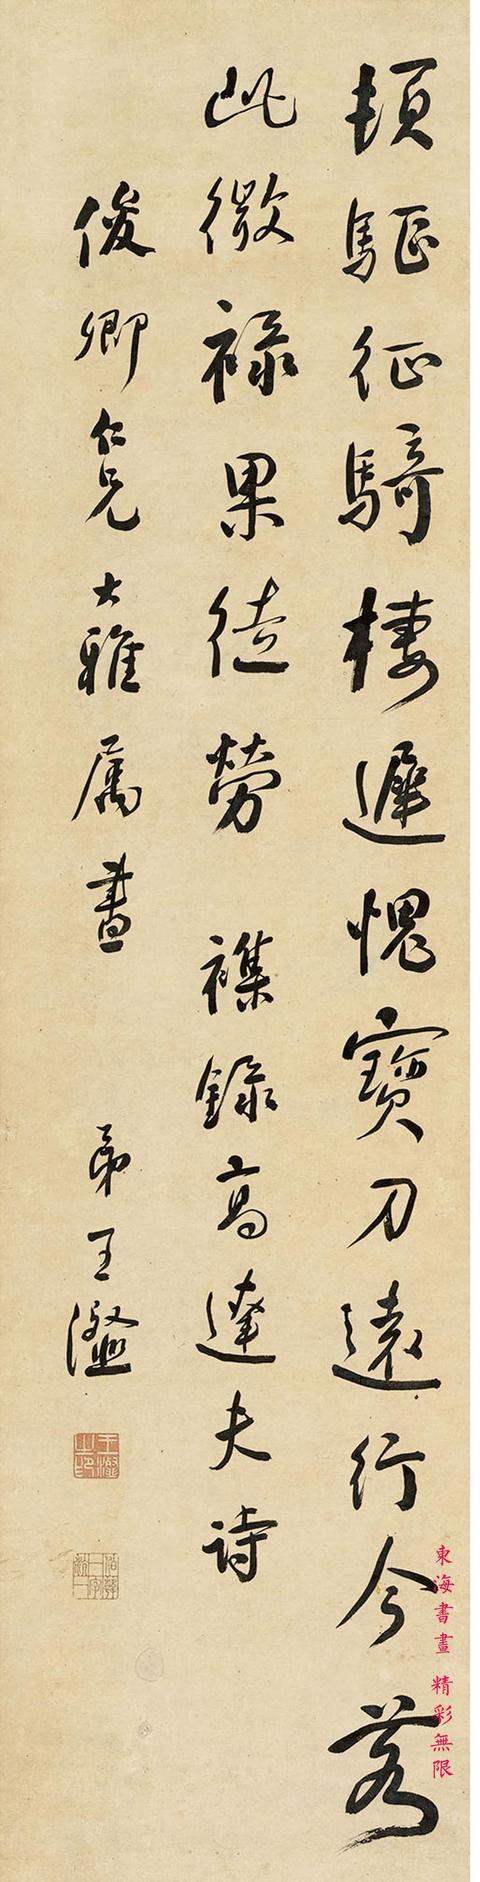 頓驅征騎棲遲愧寶刀遠行今若
此微祿果徒勞 襍錄高達夫詩
俊卿仁兄大雅屬書 弟王瀣
王瀣之印
東海書畫 精彩無限